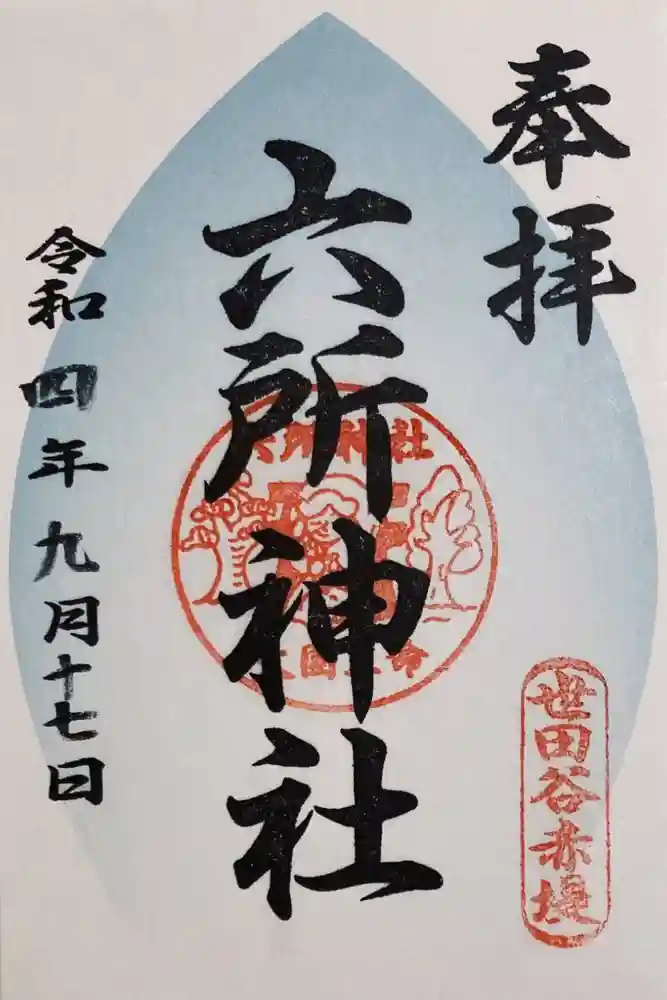 奉拝
六所神社
六所神社
大国主命
世田谷赤堤
令和四年九月十七日